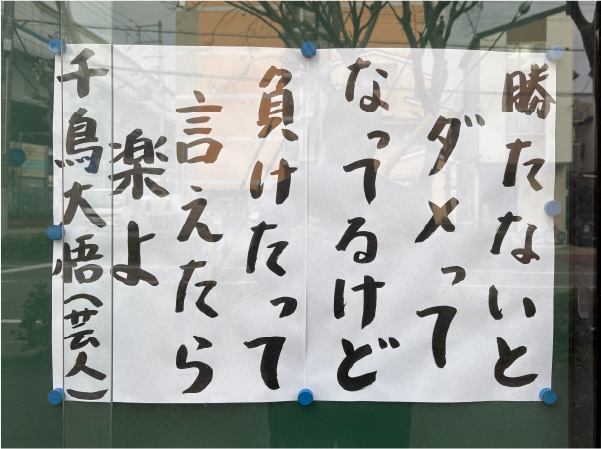 勝たないと
ダメって
なってるけど
負けたって
言えたら
楽よ
千鳥大悟(芸人)